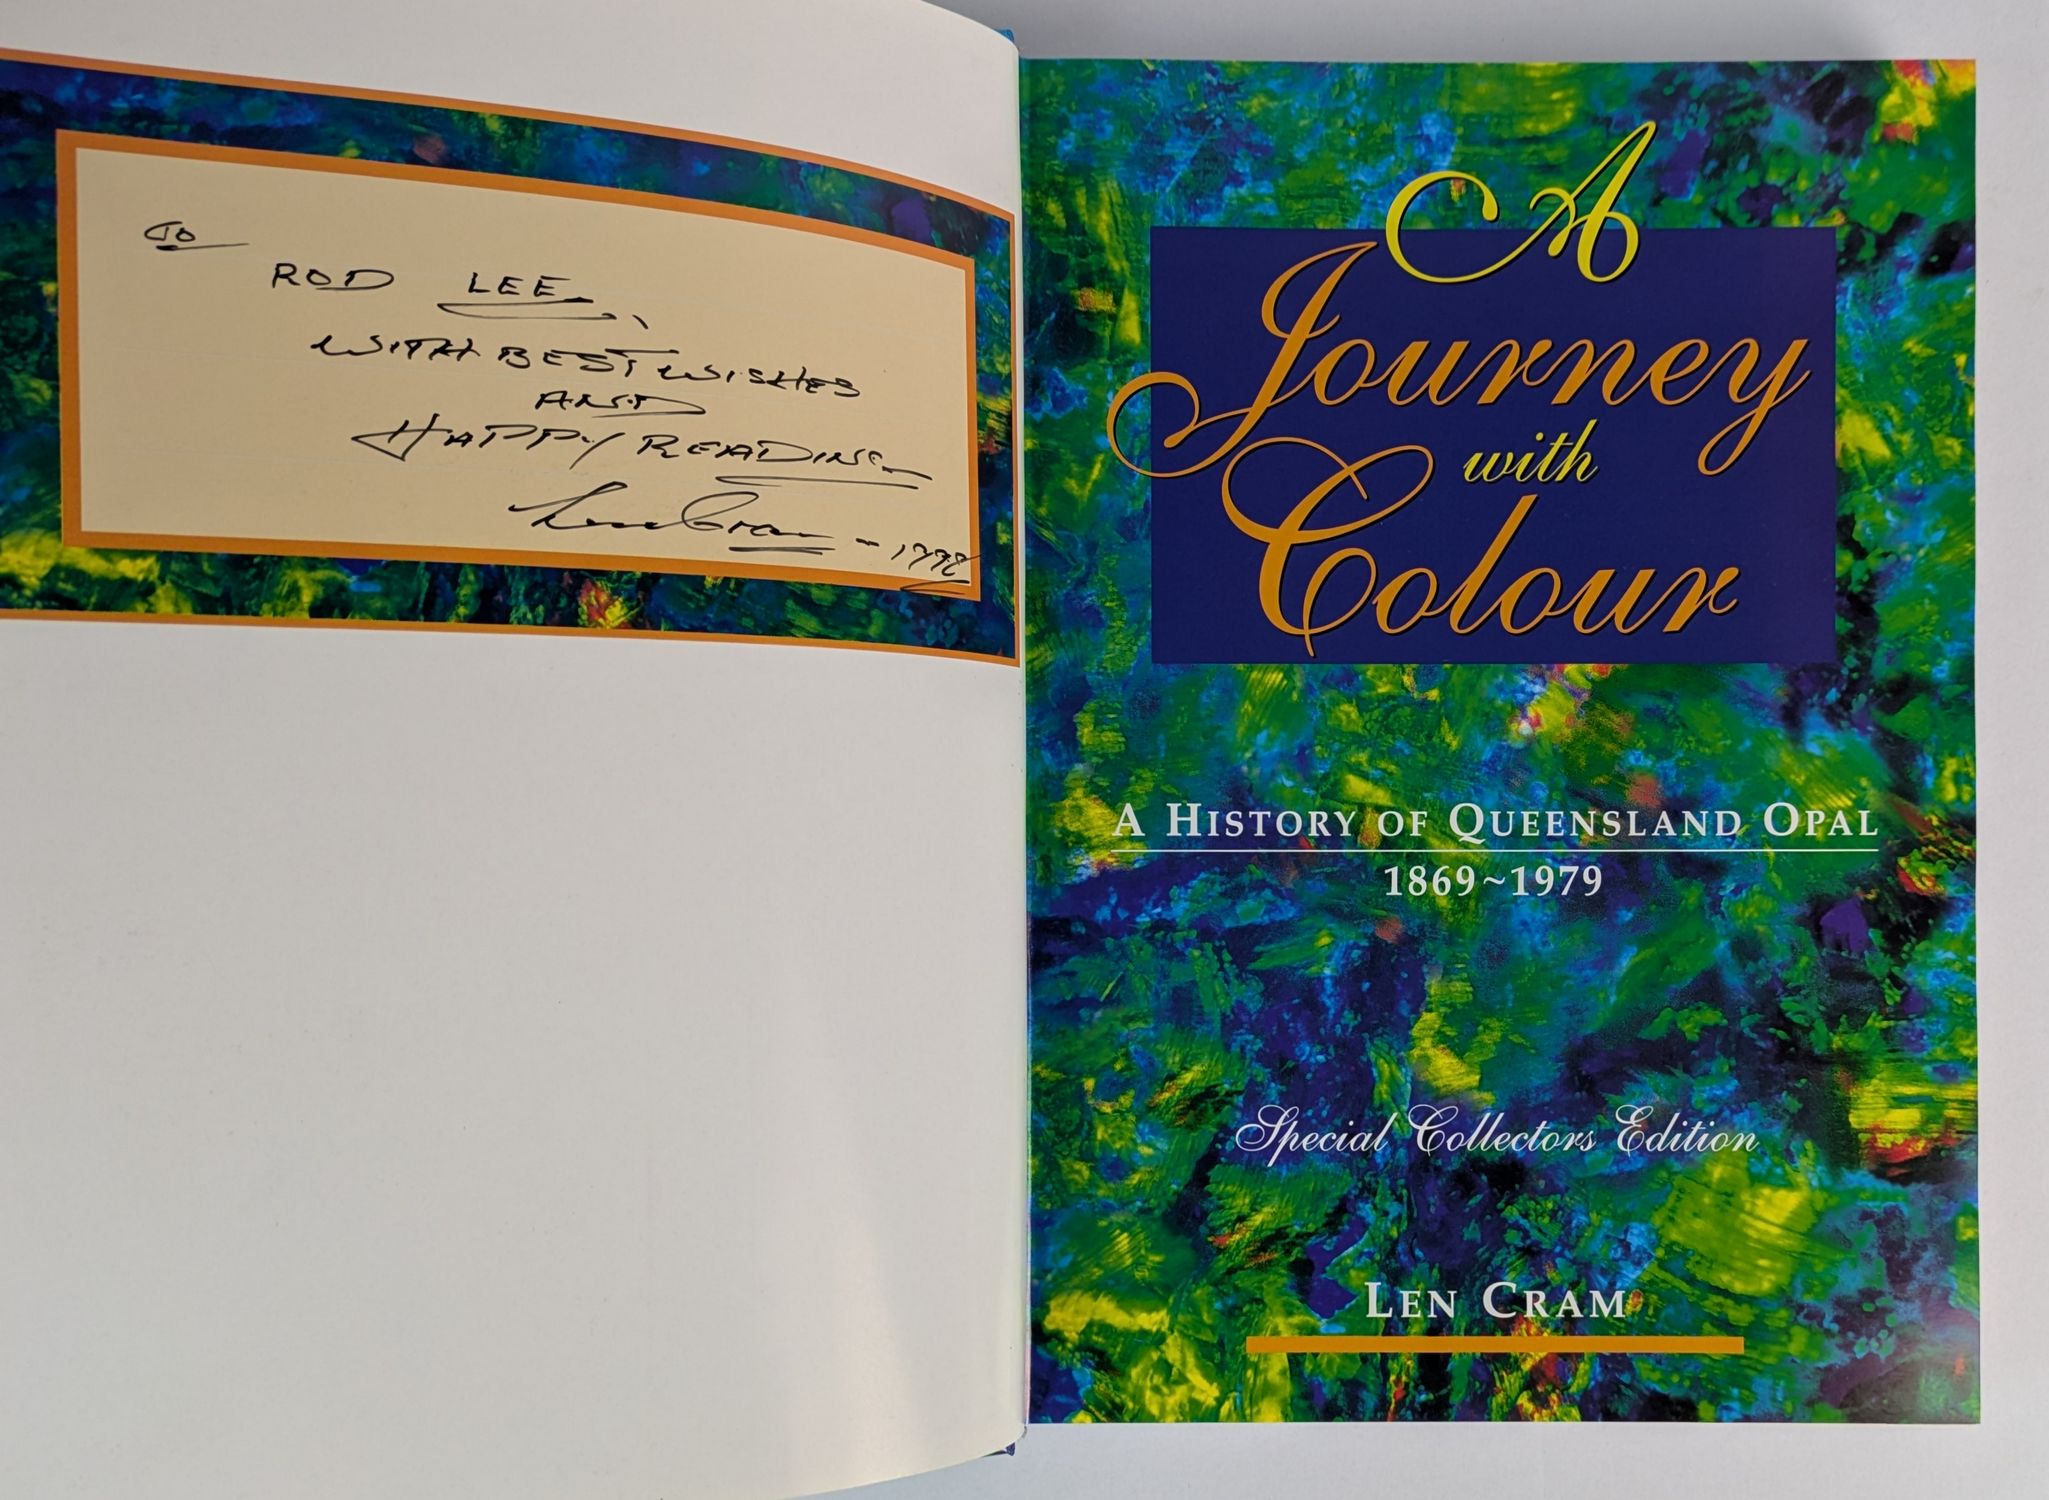 To
ROD LEE,
WITH BEST WISHES
AND
HAPPY READING
Len Cram - 1998
A
Journey
with
Colour
A HISTORY OF QUEENSLAND OPAL
1869~1979
Special Collectors Edition
LEN CRAM